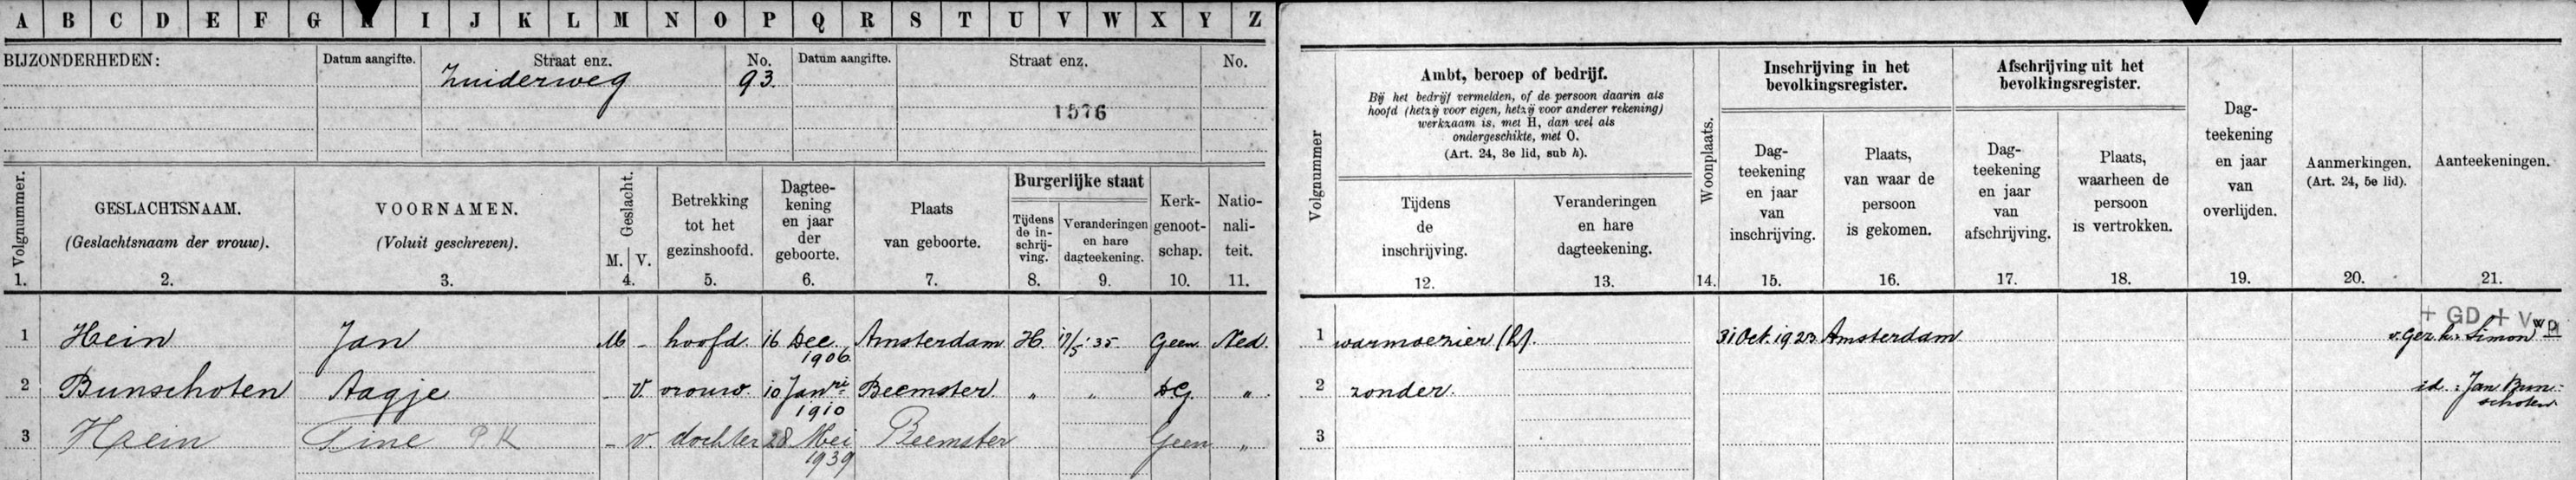 A B C D E F G I J K L M N O P Q R S T U V W X Y Z
BIJZONDERHEDEN:
Datum aangifte.
Straat enz.
No.
Datum aangifte.
Straat enz.
No.
Zuiderweg
93.
1576
Volgnummer.
1.
GESLACHTSNAAM.
(Geslachtsnaam der vrouw).
2.
VOORNAMEN.
(Voluit geschreven).
3.
Geslacht.
M. V.
4.
Betrekking
tot het
gezinshoofd.
5.
Dagtee-
kening
en jaar
der
geboorte.
6.
Plaats
van geboorte.
7.
Burgerlijke staat
Tijdens
de in-
schrij-
ving.
8.
Veranderingen
en hare
dagteekening.
9.
Kerk-
genoot-
schap.
10.
Natio-
nali-
teit.
11.
1 Hein Jan M - hoofd. 16 Dec. 1906 Amsterdam H. 17/5 '35. Geen Ned.
2 Bunschoten Aagje - V. vrouw. 10 Janri 1910 Beemster " " DG. "
3 Hein Tine PK - v. dochter 28 Mei 1939 Beemster Geen "
Volgnummer
Ambt, beroep of bedrijf.
Bij het bedrijf vermelden, of de persoon daarin als
hoofd (hetzij voor eigen, hetzij voor anderer rekening)
werkzaam is, met H, dan wel als
ondergeschikte, met O.
(Art. 24, 3e lid, sub h).
Tijdens
de
inschrijving.
12.
Veranderingen
en hare
dagteekening.
13.
Woonplaats.
14.
Inschrijving in het
bevolkingsregister.
Dag-
teekening
en jaar
van
inschrijving.
15.
Plaats,
van waar de
persoon
is gekomen.
16.
Afschrijving uit het
bevolkingsregister.
Dag-
teekening
en jaar
van
afschrijving.
17.
Plaats,
waarheen de
persoon
is vertrokken.
18.
Dag-
teekening
en jaar
van
overlijden.
19.
Aanmerkingen.
(Art. 24, 5e lid).
20.
Aanteekeningen.
21.
+ GD + V
1 warmoezier (h). 31 Oct. 1923 Amsterdam v. Gez. k: Simon
2 zonder. id.: Jan Bun-
schoten
3